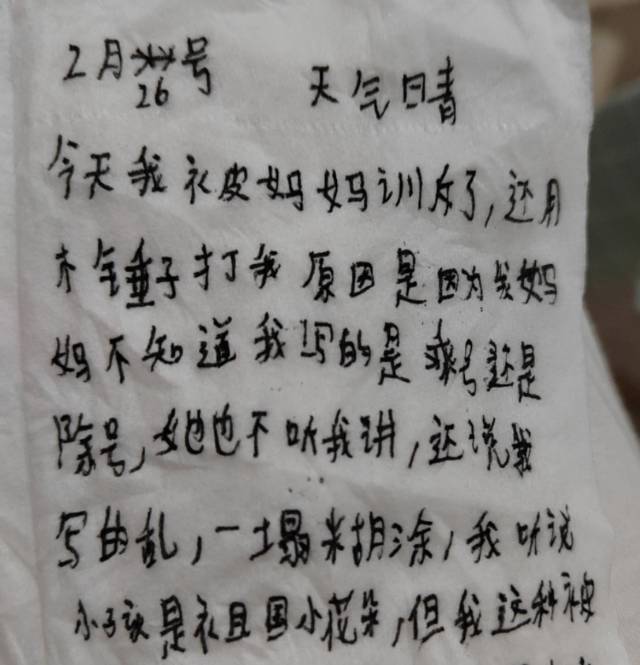 2月26号 天气晴
今天我被妈妈训斥了,还用
木锤子打我 原因是因为我妈
妈不知道我写的是乘号还是
除号,她也不听我讲,还说我
写的乱,一塌糊涂,我听说
小孩是祖国小花朵,但我这种被